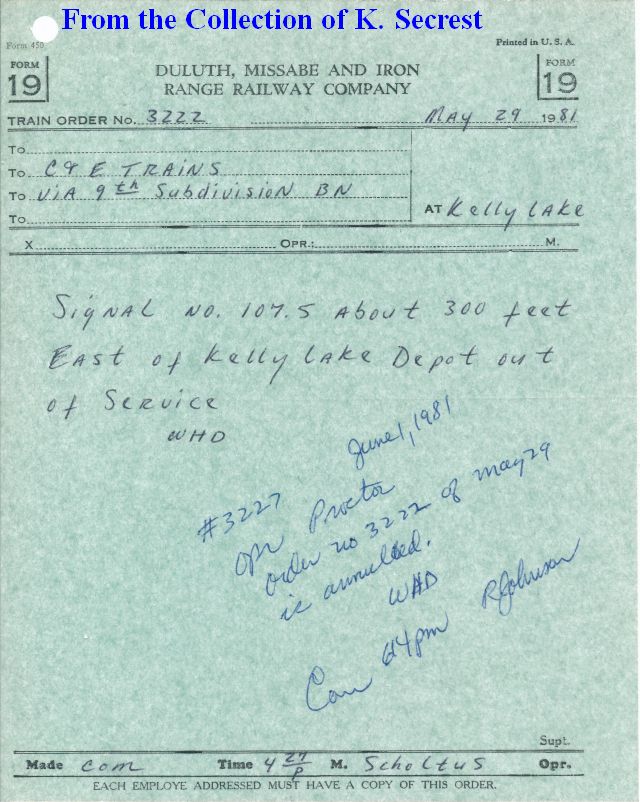 From the Collection of K. Secrest
Form 450
Printed in U. S. A.
FORM 19
DULUTH, MISSABE AND IRON
RANGE RAILWAY COMPANY
FORM 19
TRAIN ORDER No. 3222 MAY 29 1981
To
To C&E TRAINS
To ViA 9th Subdivision BN
To
AT Kelly LAKE
X OPR.: M.
Signal no. 107.5 About 300 feet
EAST of Kelly LAKE Depot out
of Service
WHD
June 1, 1981
#3227
Opr Proctor
Order no 3222 of May 29
is annulled.
WHD
Com 64 pm RJohnson
Supt.
Made com Time 4 27 P M. Scholtus Opr.
EACH EMPLOYE ADDRESSED MUST HAVE A COPY OF THIS ORDER.